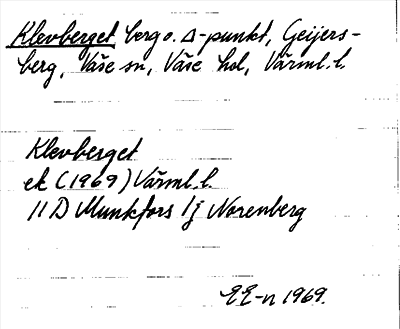 Klevberget, berg o. Δ-punkt, Geijers-
berg, Väse sn, Väse hd, Värml. l.
Klevberget
ek (1969) Värml. l.
11 D Munkfors 1j Norenberg
EE-n 1969.